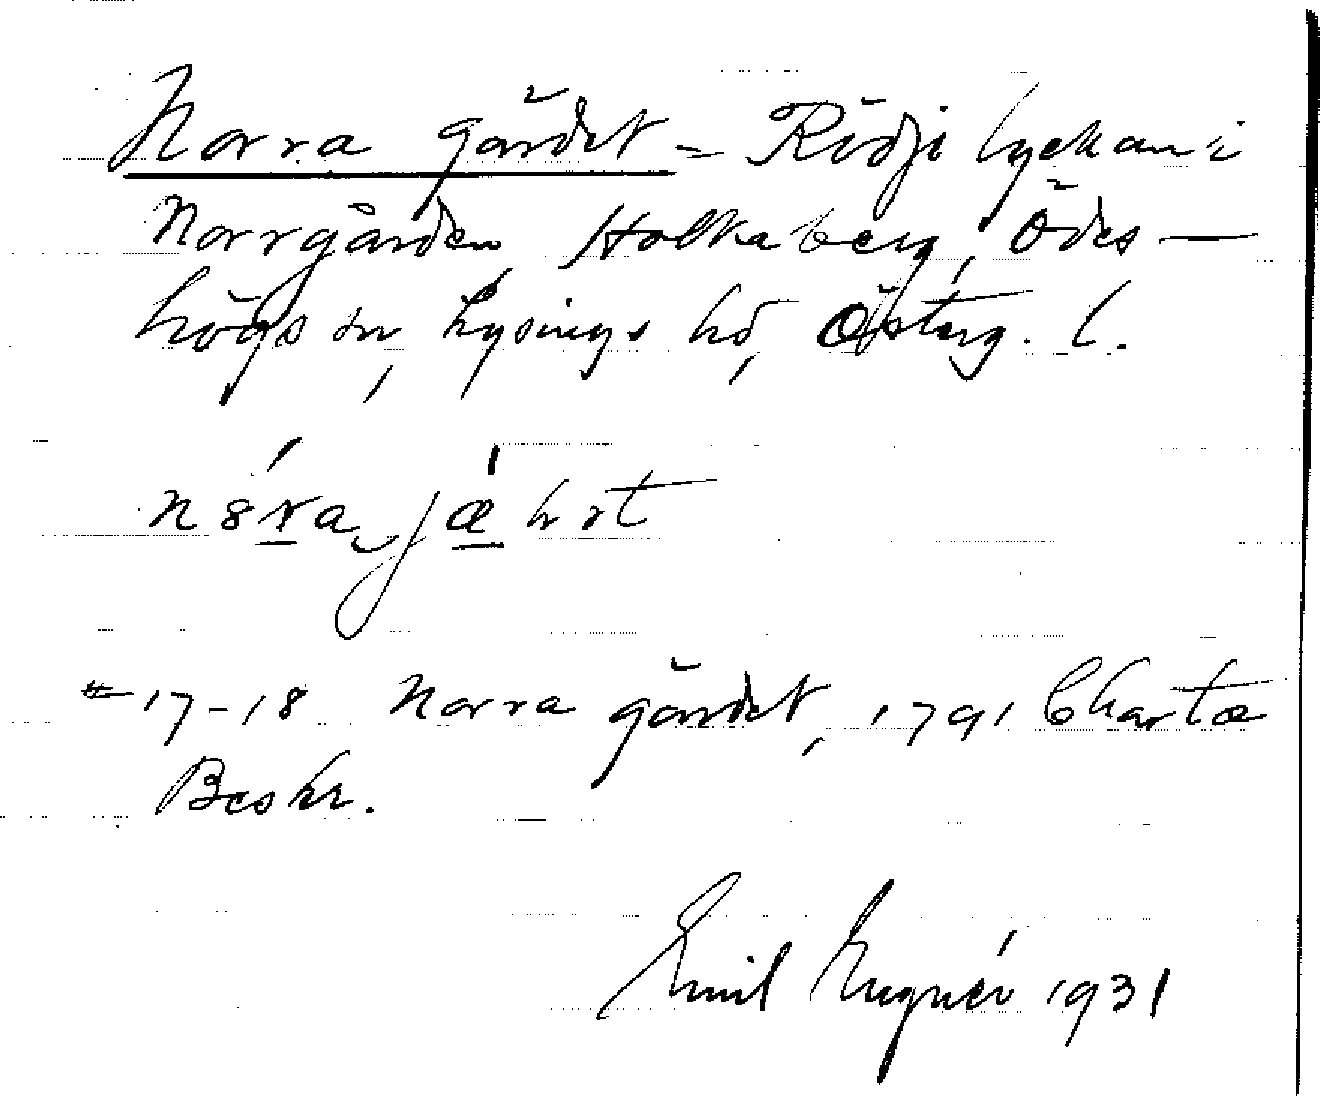 Norra gärdet = Rödjelyckan i
Norrgården, Holkaberg, Ödes-
högs sn, Lysings hd, Österg. l.
n8ra jæhrt
# 17-18 Norra gärdet, 1791 Charta
Beskr.
Emil 1931